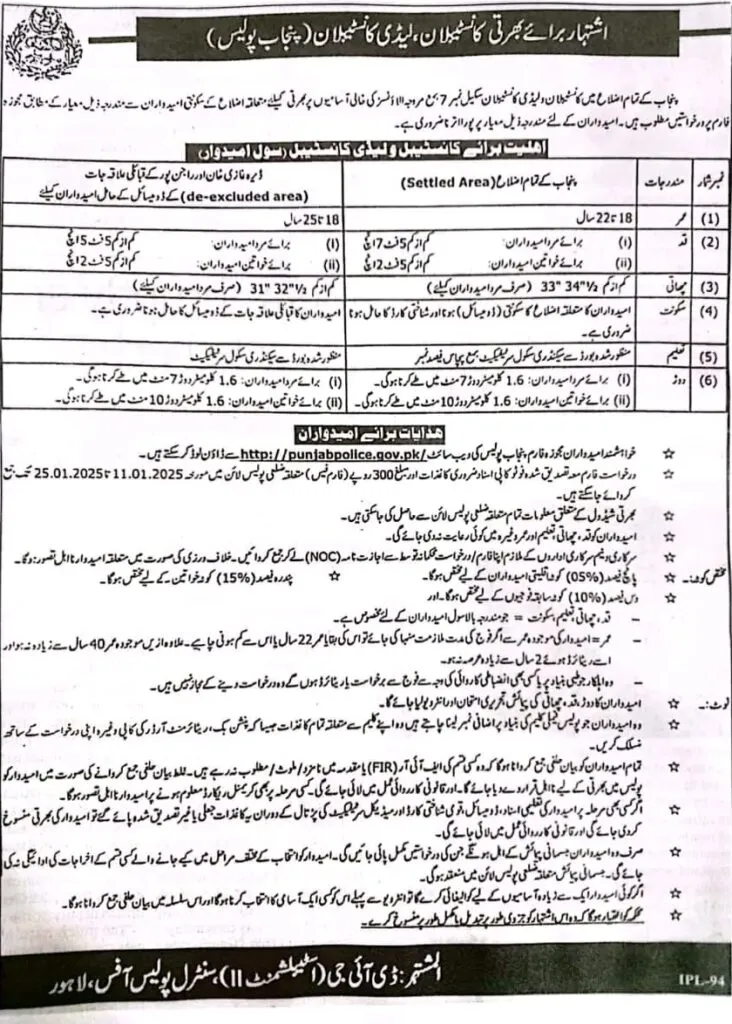 اشتہار برائے بھرتی کانسٹیبلان، لیڈی کانسٹیبلان (پنجاب پولیس)
پنجاب کے تمام اضلاع میں کانسٹیبلان و لیڈی کانسٹیبلان سکیل نمبر 7 بمع مروجہ الاؤنسز کی خالی آسامیوں پر بھرتی کیلئے متعلقہ اضلاع کے سکونتی امیدواران سے مندرجہ ذیل معیار کے مطابق مجوزہ
فارم پر درخواستیں مطلوب ہیں۔ امیدواران کے لئے مندرجہ ذیل معیار پر پورا اترنا ضروری ہے۔
اہلیت برائے کانسٹیبل و لیڈی کانسٹیبل (سول امیدوار)
نمبر شمار مندرجات پنجاب کے تمام اضلاع (Settled Area) ڈیرہ غازی خان اور راجن پور کے قبائلی علاقہ جات
(de-excluded area) کے ڈومیسائل کے حامل امیدواران کیلئے
(1) عمر 18 تا 22 سال 18 تا 25 سال
(2) قد (i) برائے مرد امیدواران: کم از کم 5 فٹ 7 انچ (i) برائے مرد امیدواران: کم از کم 5 فٹ 5 انچ
(ii) برائے خواتین امیدواران: کم از کم 5 فٹ 2 انچ (ii) برائے خواتین امیدواران: کم از کم 5 فٹ 2 انچ
(3) چھاتی کم از کم 33" 34½" (صرف مرد امیدواران کیلئے) کم از کم 31" 32½" (صرف مرد امیدواران کیلئے)
(4) سکونت امیدواران کا متعلقہ اضلاع کا سکونتی (ڈومیسائل) ہونا اور شناختی کارڈ کا حامل ہونا امیدواران کا قبائلی علاقہ جات کے ڈومیسائل کا حامل ہونا ضروری ہے۔
ضروری ہے۔
(5) تعلیم منظور شدہ بورڈ سے سیکنڈری سکول سرٹیفکیٹ بمع پچاس فیصد نمبر منظور شدہ بورڈ سے سیکنڈری سکول سرٹیفکیٹ
(6) دوڑ (i) برائے مرد امیدواران: 1.6 کلومیٹر دوڑ 7 منٹ میں طے کرنا ہوگی۔ (i) برائے مرد امیدواران: 1.6 کلومیٹر دوڑ 7 منٹ میں طے کرنا ہوگی۔
(ii) برائے خواتین امیدواران: 1.6 کلومیٹر دوڑ 10 منٹ میں طے کرنا ہوگی۔ (ii) برائے خواتین امیدواران: 1.6 کلومیٹر دوڑ 10 منٹ میں طے کرنا ہوگی۔
ھدایات برائے امیدواران
☆ خواہشمند امیدواران مجوزہ فارم پنجاب پولیس کی ویب سائٹ http://punjabpolice.gov.pk/ سے ڈاؤن لوڈ کر سکتے ہیں۔
☆ درخواست فارم معہ تصدیق شدہ فوٹو کاپی اسناد ضروری کاغذات اور مبلغ 300 روپے (فارم فیس) متعلقہ ضلعی پولیس لائن میں مورخہ 11.01.2025 تا 25.01.2025 تک جمع
کروائے جا سکتے ہیں۔
☆ بھرتی شیڈول کے متعلق معلومات تمام متعلقہ ضلعی پولیس لائن سے حاصل کی جا سکتی ہیں۔
☆ امیدواران کو قد، چھاتی، تعلیم اور عمر وغیرہ میں کوئی رعایت نہ دی جائے گی۔
☆ سرکاری و نیم سرکاری اداروں کے ملازم اپنا فارم/درخواست محکمانہ توسط سے اجازت نامہ (NOC) لے کر جمع کروائیں۔ خلاف ورزی کی صورت میں متعلقہ امیدوار نااہل تصور ہوگا۔
مختص کوٹہ:۔ ☆ پانچ فیصد (05%) کوٹہ اقلیتی امیدواران کے لیے مختص ہوگا۔ ☆ پندرہ فیصد (15%) کوٹہ خواتین کے لیے مختص ہوگا۔
☆ دس فیصد (10%) کوٹہ سابقہ فوجیوں کے لیے مختص ہوگا۔ اور
– قد، چھاتی، تعلیم، سکونت = جو مندرجہ بالا سول امیدواران کے لئے مخصوص ہے۔
– عمر = امیدوار کی موجودہ عمر سے اگر فوج کی مدت ملازمت منہا کی جائے تو اس کی بقایا عمر 22 سال یا اس سے کم ہونی چاہیے۔ علاوہ ازیں موجودہ عمر 40 سال سے زیادہ نہ ہو اور
اسے ریٹائرڈ ہوئے 2 سال سے زیادہ عرصہ نہ ہو۔
– وہ اہلکار جو طبی بنیاد پر یا کسی بھی انضباطی کاروائی کی وجہ سے فوج سے برخواست یا ریٹائرڈ ہوں گے وہ درخواست دینے کے مجاز نہیں ہیں۔
نوٹ:۔ ☆ امیدواران کا دوڑ، قد، چھاتی کی پیمائش، تحریری امتحان اور انٹرویو لیا جائے گا۔
☆ وہ امیدواران جو پولیس فیملی کلیم کی بنیاد پر اضافی نمبر لینا چاہتے ہیں وہ اپنے کلیم سے متعلقہ تمام کاغذات جیسا کہ پنشن بک، ریٹائرمنٹ آرڈر کی کاپی وغیرہ اپنی درخواست کے ساتھ
منسلک کریں۔
☆ تمام امیدواران کو بیان حلفی جمع کروانا ہوگا کہ وہ کسی قسم کی ایف آئی آر (FIR) یا مقدمہ میں نامزد/ملوث/مطلوب نہ رہے ہیں۔ غلط بیان حلفی جمع کروانے کی صورت میں امیدوار کو
پولیس میں بھرتی کے لیے نااہل قرار دے دیا جائے گا۔ اور قانونی کارروائی عمل میں لائی جائے گی۔ کسی مرحلہ پر بھی کریمنل ریکارڈ معلوم ہونے پر امیدوار نااہل تصور ہوگا۔
☆ اگر کسی بھی مرحلہ پر امیدوار کی تعلیمی اسناد، ڈومیسائل، قومی شناختی کارڈ اور میڈیکل سرٹیفکیٹ کی پڑتال کے دوران یہ کاغذات جعلی یا غیر تصدیق شدہ پائے گئے تو امیدوار کی بھرتی منسوخ
کر دی جائے گی اور قانونی کارروائی عمل میں لائی جائے گی۔
☆ صرف وہ امیدواران جسمانی پیمائش کے اہل ہونگے جن کی درخواستیں مکمل پائی جائیں گی۔ امیدوار کو انتخاب کے مختلف مراحل میں کیے جانے والے کسی قسم کے اخراجات کی ادائیگی نہ کی
جائے گی۔ جسمانی پیمائش متعلقہ ضلعی پولیس لائن میں منعقد ہوگی۔
☆ اگر کوئی امیدوار ایک سے زیادہ آسامیوں کے لیے کوالیفائی کرے گا تو انٹرویو سے پہلے اس کو کسی ایک آسامی کا انتخاب کرنا ہوگا اور اس سلسلہ میں بیان حلفی جمع کروانا ہوگا۔
☆ محکمہ کو اختیار ہوگا کہ وہ اس اشتہار کو جزوی طور پر تبدیل یا مکمل طور پر منسوخ کرے۔
المشتہر: ڈی آئی جی (اسٹیبلشمنٹ II)، سنٹرل پولیس آفس، لاہور
IPL-94